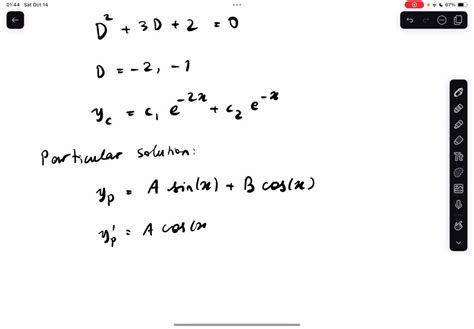 01:44 Sat Oct 14
67%
D² + 3D + 2 = 0
D = -2, -1
y_c = c₁ e^{-2x} + c₂ e^{-x}
Particular solution:
y_p = A sin(x) + B cos(x)
y_p' = A cos(x